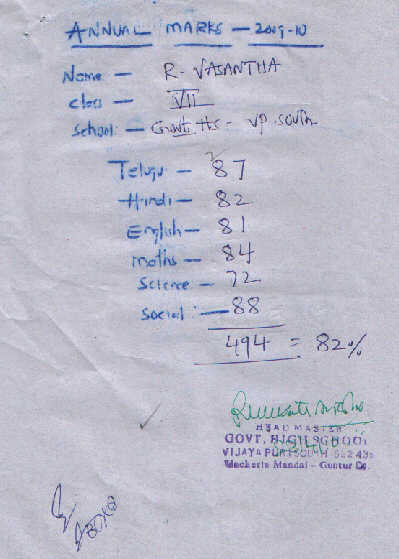 ANNUAL MARKS - 2009-10
Name - R. VASANTHA
class - VII
school - Govt. HS - VP South
Telugu - 87
Hindi - 82
English - 81
maths - 84
Science - 72
Social - 88
494 = 82%
HEAD MASTER
GOVT. HIGH SCHOOL
VIJAYAPURI SOUTH
Macherla Mandal - Guntur Dt.